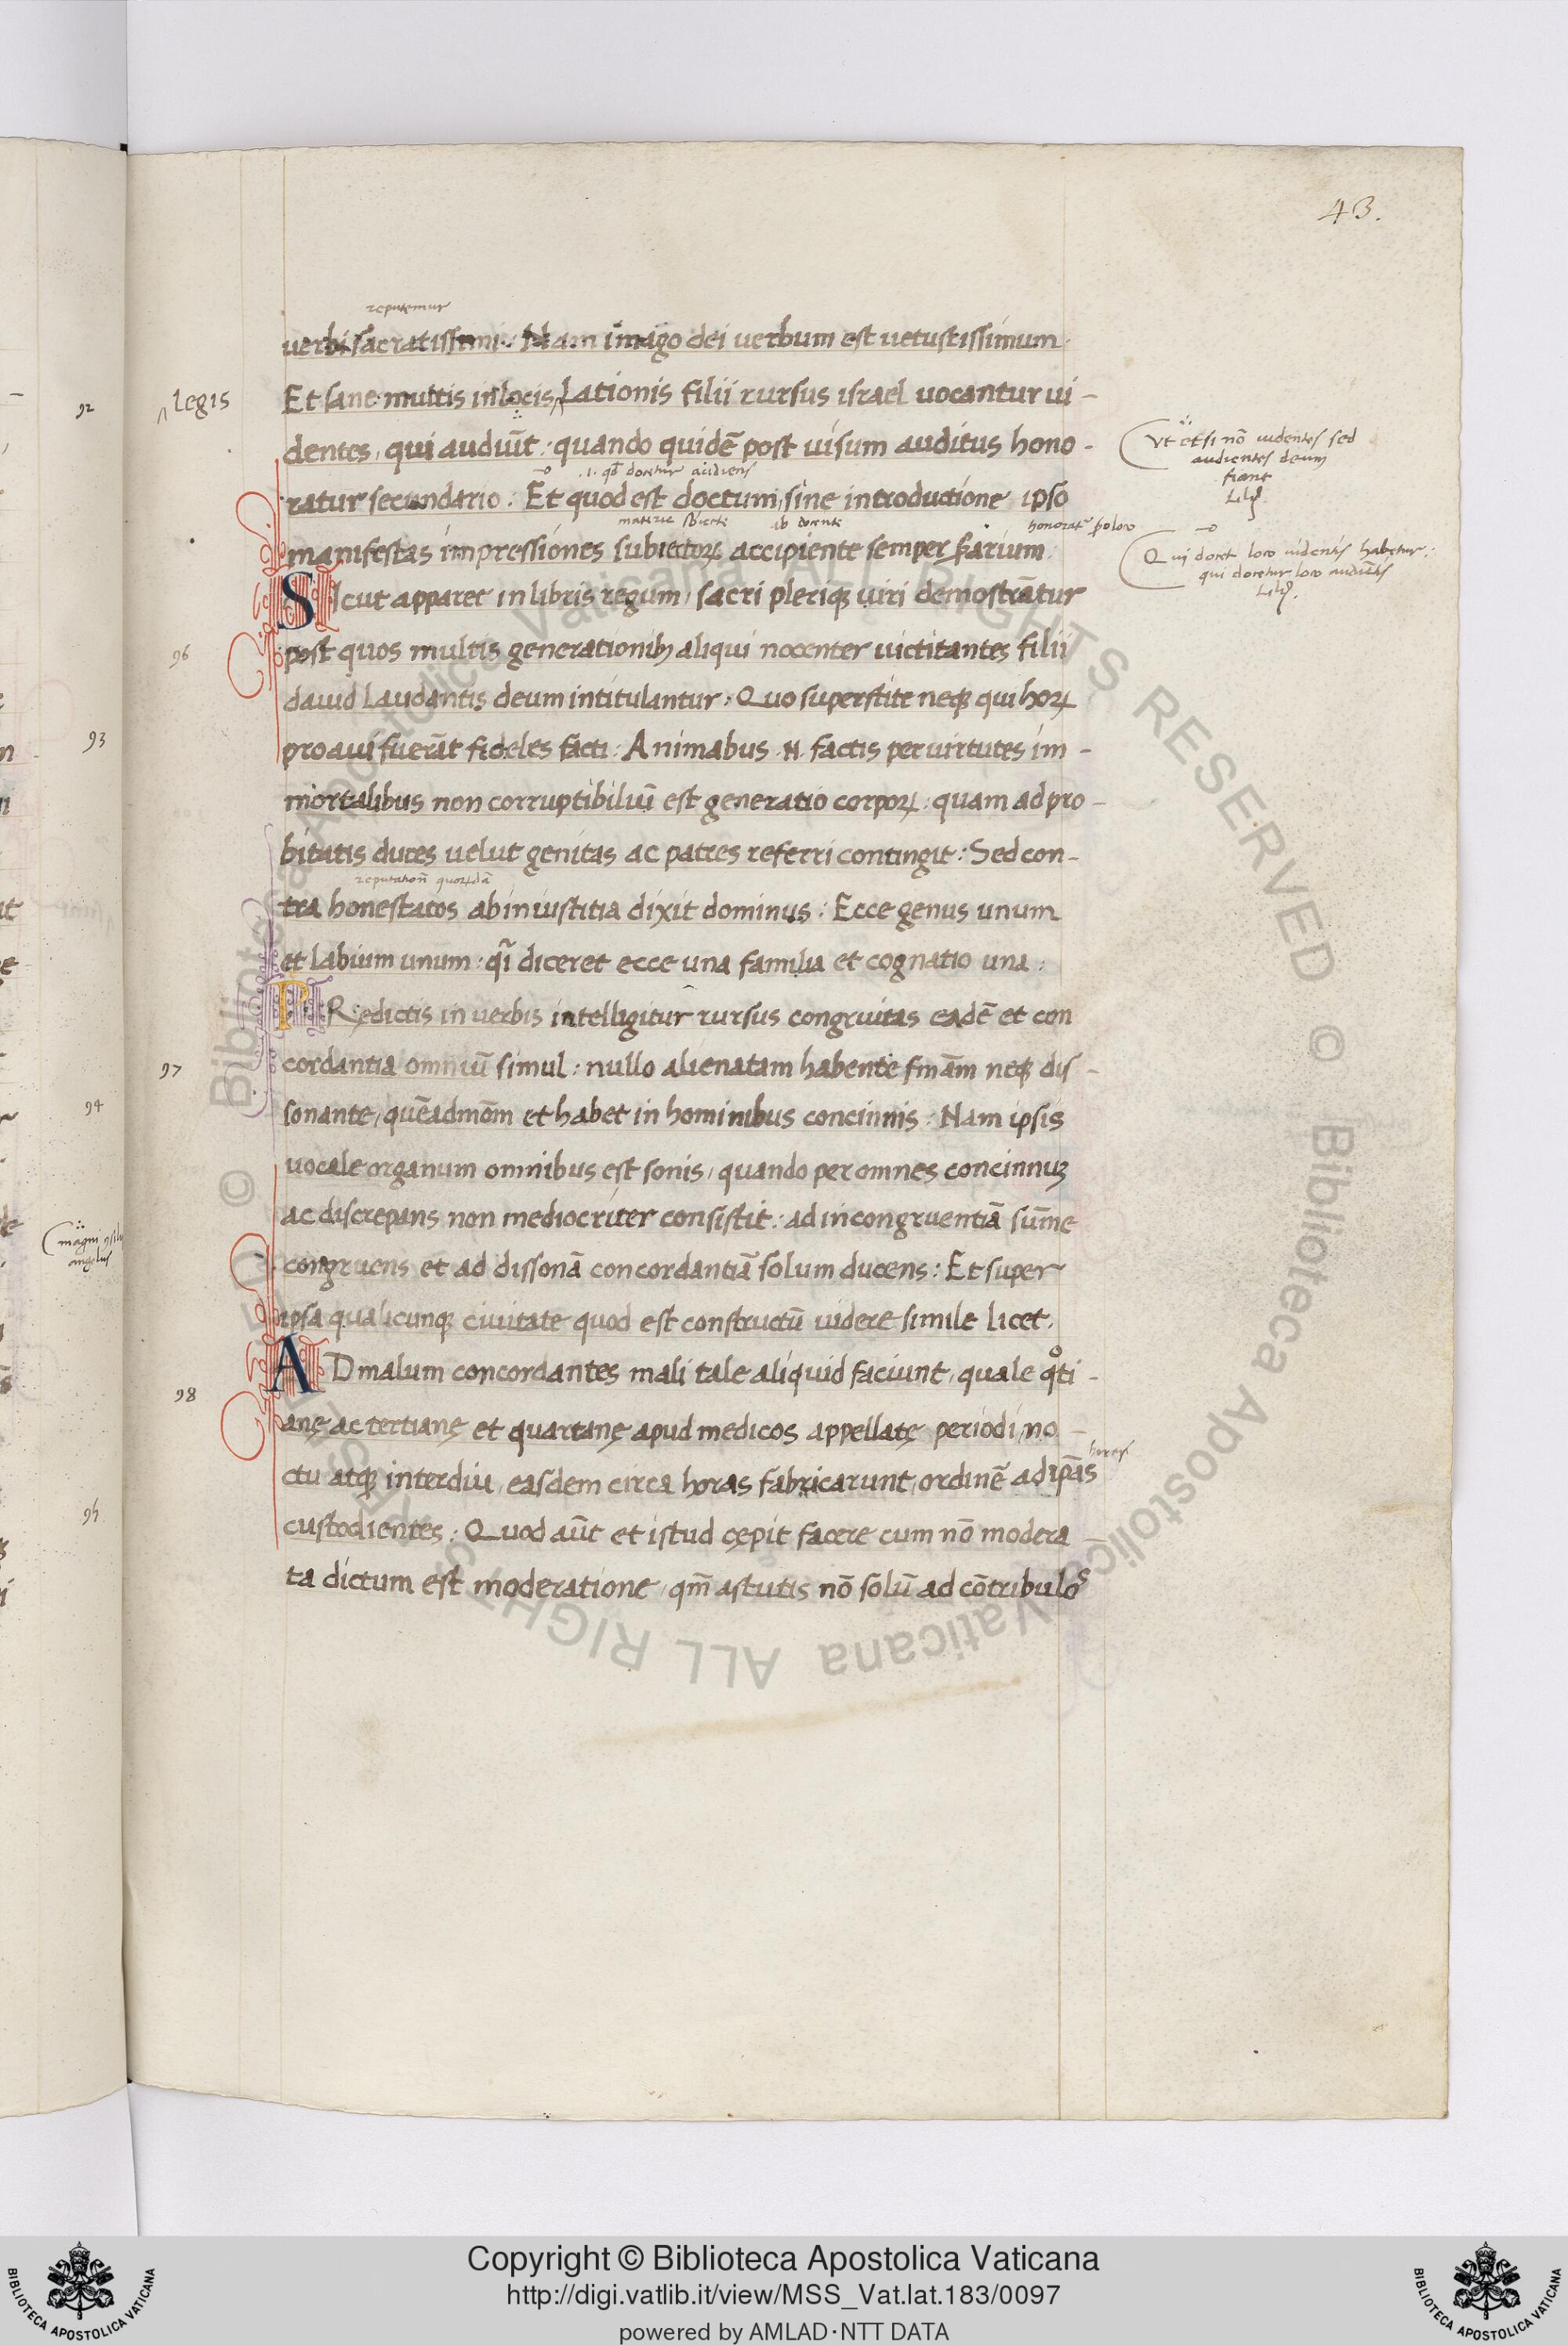 43.
reputemur
uerbi sacratissimi: Nam imago dei uerbum est uetustissimum.
92
legis
Et sane multis in locis Lationis filii rursus israel uocantur ui-
dentes, qui audiūt: quando quidē post uisum auditus hono-
Vt etsi nō uidentes sed
audientes deum
fiant
.i. qđ docetur audiens
ratur secundario: Et quod est doctum, sine introductione ipso
materie ab docente
manifestas impressiones subiectoꝝ accipiente semper
Qui docet loco uidentis habetur:
qui docetur loco audiētis
SIcut apparet in libris regum, sacri pleriqꝫ uiri demostrātur
96
post quos multis generationibꝫ aliqui nocenter uictitantes filii
dauid Laudantis deum intitulantur: Quo superstite neqꝫ qui hoꝝ
93
proaui fuerāt fideles facti: Animabus .N. factis per uirtutes im-
mortalibus non corruptibiliū est generatio corpoꝝ: quam ad pro-
bitatis duces uelut genitas ac patres referri contingit: Sed con-
tra honestatos ab iniustitia dixit dominus: Ecce genus unum
et labium unum: qī diceret ecce una familia et cognatio una:
PRędictis in uerbis intelligitur rursus congruitas eadē et con
97
cordantia omniū simul: nullo alienatam habente sn̄iam neqꝫ dis-
94
sonante, quēadmōm et habet in hominibus concinnis: Nam ipsis
uocale organum omnibus est sonis, quando per omnes concinnuꝫ
ac discrepans non mediocriter consistit: ad incongruentiā sūme
magni
angelus
congruens et ad dissonā concordantiā solum ducens: Et super
ipsa qualicunqꝫ ciuitate quod est constructū uidere simile licet.
AD malum concordantes mali tale aliquid faciunt, quale qͦti-
98
anę ac tertianę et quartanę apud medicos appellatę periodi, no-
horas
ctu atqꝫ interdiu, easdem circa horas fabricarunt, ordinē ad ip̄as
95
custodientes: Quod aūt et istud cępit facere cum nō modera-
ta dictum est moderatione, qm̄ astutis nō solū ad cōtribulos
© Biblioteca Apostolica Vaticana ALL RIGHTS RESERVED © Biblioteca Apostolica Vaticana ALL RIGHTS RESERVED
BIBLIOTECA APOSTOLICA VATICANA
Copyright © Biblioteca Apostolica Vaticana
http://digi.vatlib.it/view/MSS_Vat.lat.183/0097
powered by AMLAD·NTT DATA
BIBLIOTECA APOSTOLICA VATICANA